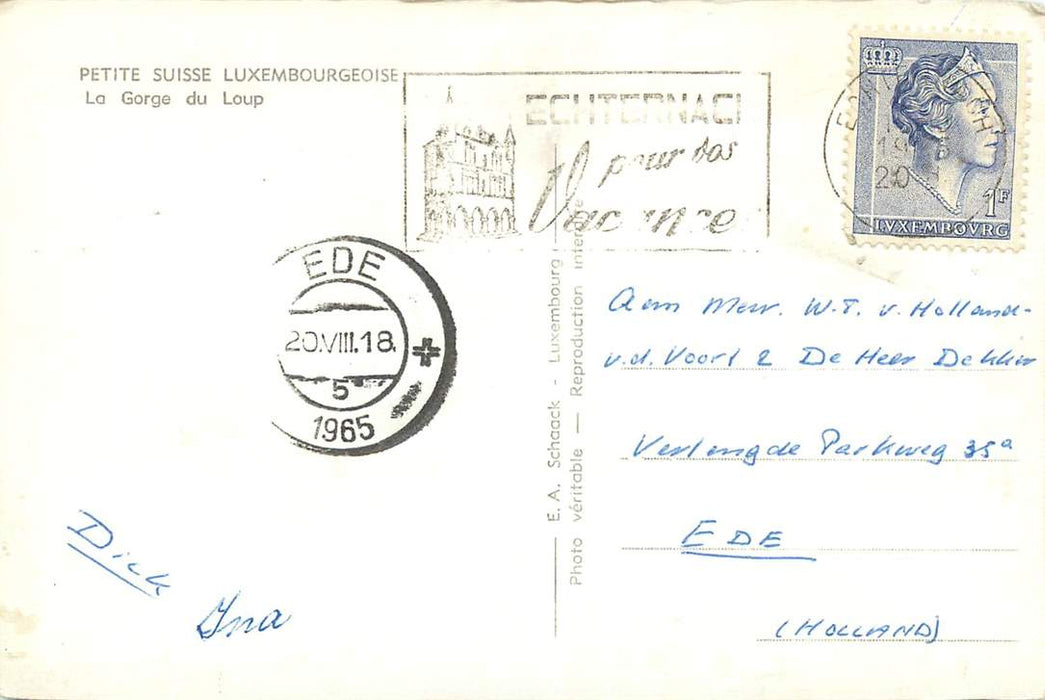 PETITE SUISSE LUXEMBOURGEOISE
La Gorge du Loup
ECHTERNACH
pour vos
Vacances
1F
LVXEMBOVRG
EDE
20.VIII.18
5
1965
E. A. Schaack - Luxembourg
Photo véritable — Reproduction interdite
Aan Mevr. W.T. v. Holland-
v.d. Voort & De Heer Dekker
Verlengde Parkweg 35a
EDE
(HOLLAND)
Dick
Ina